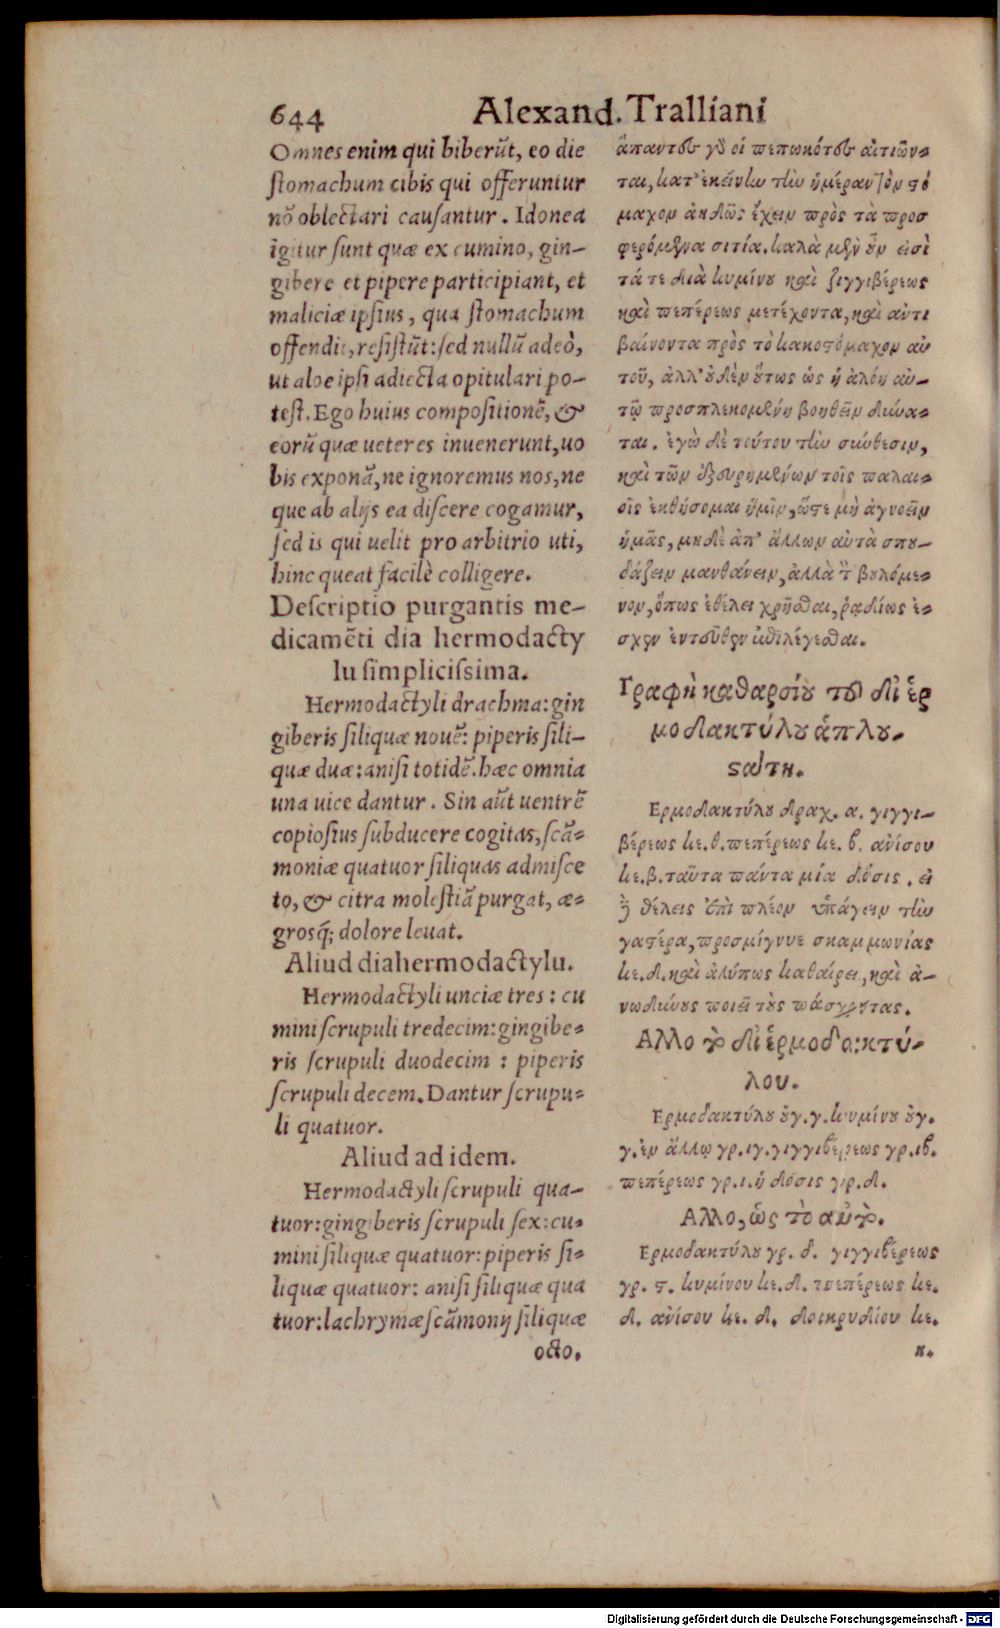 644 Alexand. Tralliani
Omnes enim qui biberũt, eo die
ſtomachum cibis qui offeruntur
nõ oblectari cauſantur. Idonea
igitur ſunt quæ ex cumino, gin-
gibere et pipere participiant, et
maliciæ ipſius, qua ſtomachum
offendit, reſiſtũt: ſed nullũ adeò,
ut aloe ipſi adiecta opitulari po-
teſt. Ego huius compoſitionẽ, &
eorũ quæ ueteres inuenerunt, uo
bis exponã, ne ignoremus nos, ne
que ab alijs ea diſcere cogamur,
ſed is qui uelit pro arbitrio uti,
hinc queat facilè colligere.
Deſcriptio purgantis me-
dicamẽti dia hermodacty
lu ſimpliciſsima.
Hermodactyli drachma: gin
giberis ſiliquæ nouẽ: piperis ſili-
quæ duæ: aniſi totidẽ. hæc omnia
una uice dantur. Sin aũt uentrẽ
copioſius ſubducere cogitas, ſcã-
moniæ quatuor ſiliquas admiſce
to, & citra moleſtiã purgat, æ-
groſq́; dolore leuat.
Aliud diahermodactylu.
Hermodactyli unciæ tres: cu
mini ſcrupuli tredecim: gingibe-
ris ſcrupuli duodecim: piperis
ſcrupuli decem. Dantur ſcrupu-
li quatuor.
Aliud ad idem.
Hermodactyli ſcrupuli qua-
tuor: gingiberis ſcrupuli ſex: cu-
mini ſiliquæ quatuor: piperis ſi-
liquæ quatuor: aniſi ſiliquæ qua
tuor: lachrymæ ſcãmonij ſiliquæ
octo.
ἅπαντες γὸ οἱ πεπωκότες αἰτιῶν-
ται, κατ' ἐκείνην τὴν ἡμέραν τὸν στό
μαχον ἀηδῶς ἔχειν πρὸς τὰ προσ
φερόμενα σιτία. καλὰ μὲν οὖν εἰσὶ
τά τε διὰ κυμίνου καὶ ζιγγιβέρεως
καὶ πεπέρεως μετέχοντα, καὶ ἀντι
βαίνοντα πρὸς τὸ κακοστόμαχον αὐ
τοῦ, ἀλλ' οὐδὲν οὕτως ὡς ἡ ἀλόη αὐ-
τῷ προσπλεκομένη βοηθεῖν δύνα-
ται. ἐγὼ δὲ τούτου τὴν σύνθεσιν,
καὶ τῶν ἐξευρημένων τοῖς παλαι-
οῖς ἐκθήσομαι ὑμῖν, ὥστε μὴ ἀγνοεῖν
ἡμᾶς, μηδὲ ἀπ' ἄλλων αὐτὰ σπου-
δάζειν μανθάνειν, ἀλλὰ τ βουλόμε-
νον, ὅπως ἐθέλει χρῆσθαι, ῥᾳδίως ἔ-
σχεν ἐντεῦθεν ἐπιλέγεσθαι.
Γραφὴ καθαρσίου τοῦ δι' ἑρ
μοδακτύλου ἁπλου-
στάτη.
Ερμοδακτύλου δραχ. α. γιγγι-
βέρεως κε. θ. πεπέρεως κε. β. ἀνίσου
κε. β. ταῦτα πάντα μία δόσις. εἰ
δὲ θέλεις ἐπὶ πλέον ὑπάγειν τὴν
γαστέρα, προσμίγνυε σκαμμωνίας
κε. δ. καὶ ἀλύπως καθαίρει, καὶ ἀ-
νωδύνους ποιεῖ τοὺς πάσχοντας.
Αλλο τὸ δι' ἑρμοδακτύ-
λου.
Ερμοδακτύλου οὐγ. γ. κυμίνου οὐγ.
γ. ἐν ἄλλῳ γρ. ιγ. γιγγιβέρεως γρ. ιβ.
πεπέρεως γρ. ι. ἡ δόσις γρ. δ.
Αλλο, ὡς τὸ αὐτό.
Ερμοδακτύλου γρ. δ. γιγγιβέρεως
γρ. ϛ. κυμίνου κε. δ. πεπέρεως κε.
δ. ἀνίσου κε. δ. δακρυδίου κε.
η.
Digitalisierung gefördert durch die Deutsche Forschungsgemeinschaft - DFG